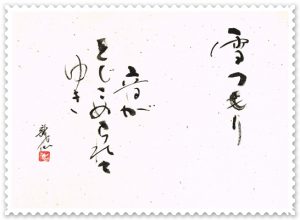 雪つもり
音が
とじこめられて
ゆき